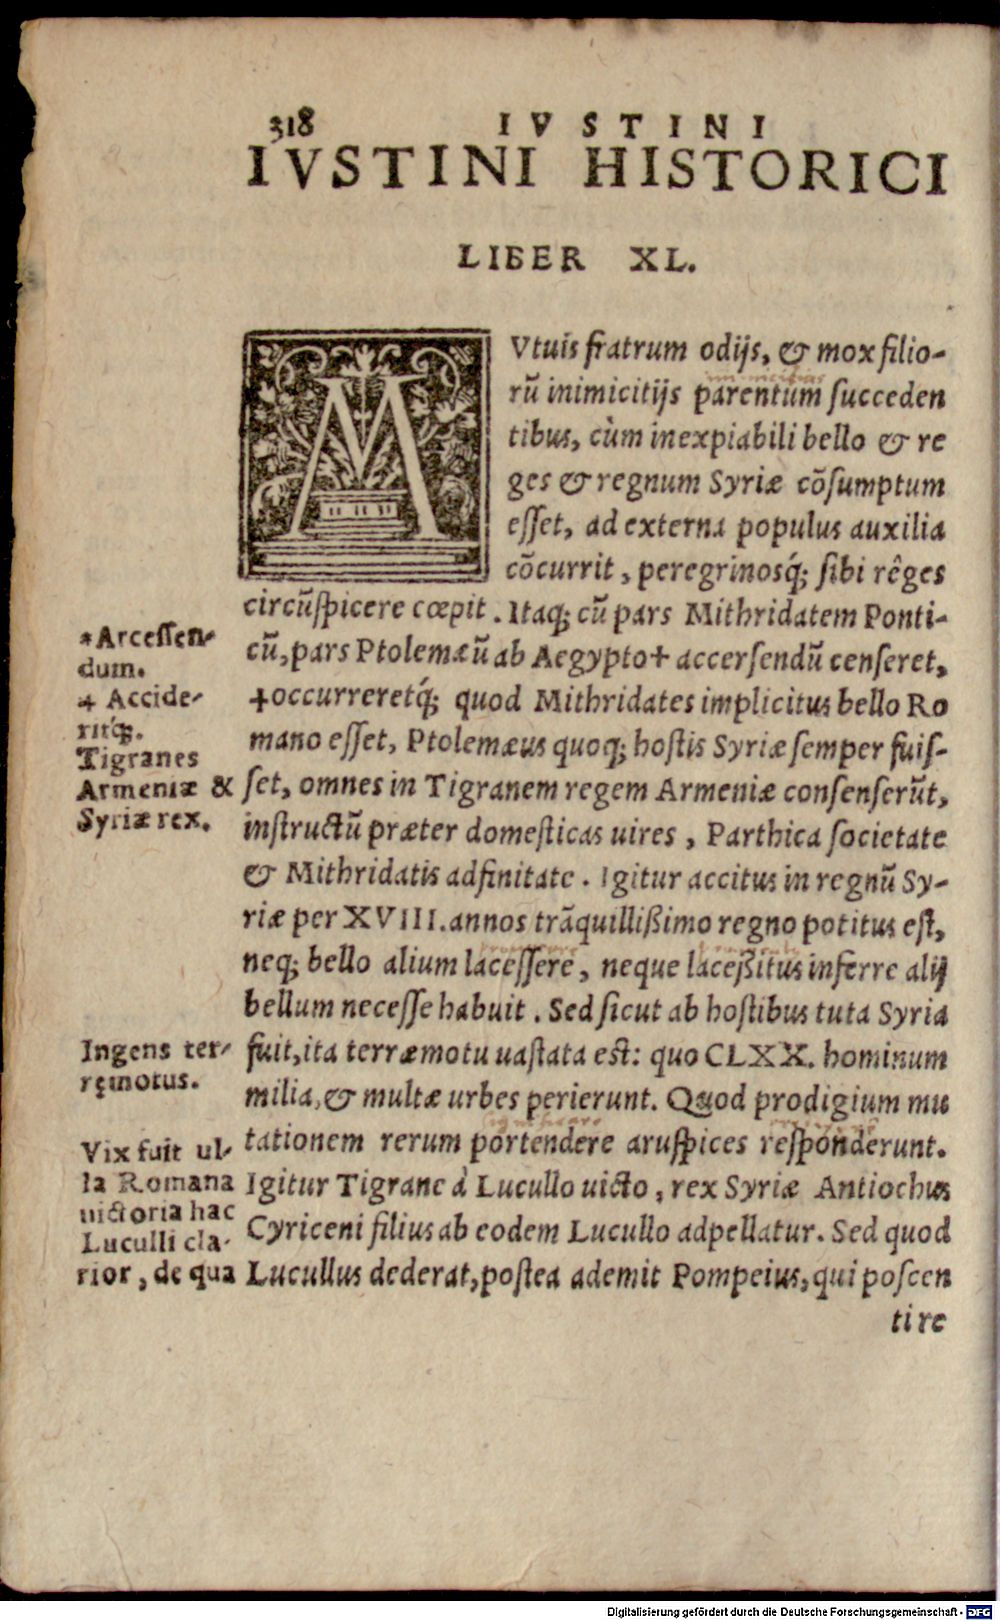 318 IVSTINI
IVSTINI HISTORICI
LIBER XL.
MVtuis fratrum odijs, & mox filio-
rũ inimicitijs parentum succeden
tibus, cùm inexpiabili bello & re
ges & regnum Syriæ cõsumptum
esset, ad externa populus auxilia
cõcurrit, peregrinosq́; sibi rêges
circũspicere cœpit. Itaq; cũ pars Mithridatem Ponti-
cũ, pars Ptolemæũ ab Aegypto+ accersendũ censeret,
+occurreretq́; quod Mithridates implicitus bello Ro
mano esset, Ptolemæus quoq; hostis Syriæ semper fuis-
set, omnes in Tigranem regem Armeniæ consenserũt,
instructũ præter domesticas uires, Parthica societate
& Mithridatis adfinitate. Igitur accitus in regnũ Sy-
riæ per XVIII. annos trãquillißimo regno potitus est,
neq; bello alium lacessere, neque laceßitus inferre alij
bellum necesse habuit. Sed sicut ab hostibus tuta Syria
fuit, ita terræmotu uastata est: quo CLXX. hominum
milia, & multæ urbes perierunt. Quod prodigium mu
tationem rerum portendere aruspices responderunt.
Igitur Tigrane à Lucullo uicto, rex Syriæ Antiochus
Cyriceni filius ab eodem Lucullo adpellatur. Sed quod
Lucullus dederat, postea ademit Pompeius, qui poscen
ti re
*Arcessen-
dum.
+ Accide-
ritq́;.
Tigranes
Armeniæ &
Syriæ rex.
Ingens ter-
ręmotus.
Vix fuit ul-
la Romana
uictoria hac
Luculli cla-
rior, de qua
Digitalisierung gefördert durch die Deutsche Forschungsgemeinschaft - DFG